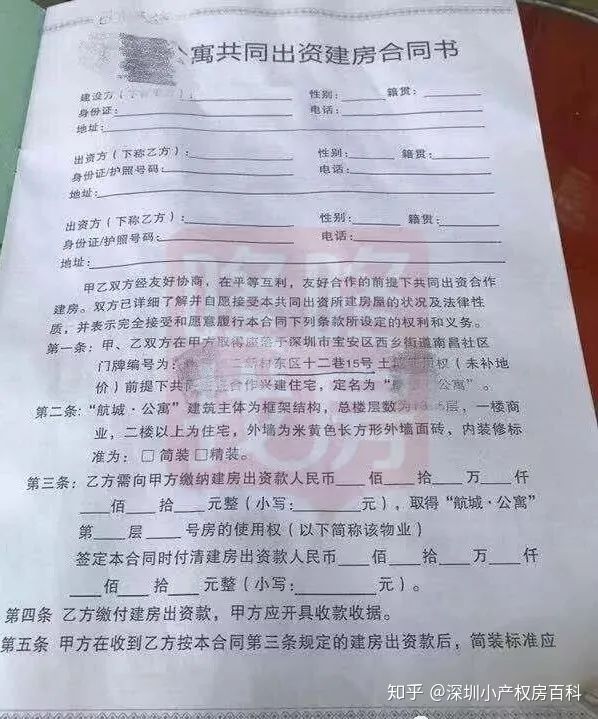 寓共同出资建房合同书
建设方( 性别: 籍贯:
身份证: 电话:
地址:
出资方(下称乙方): 性别: 籍贯:
身份证/护照号码: 电话:
地址:
出资方(下称乙方): 性别: 籍贯:
身份证/护照号码: 电话:
地址:
甲乙双方经友好协商,在平等互利,友好合作的前提下共同出资合作
建房。双方已详细了解并自愿接受本共同出资所建房屋的状况及法律性
质,并表示完全接受和愿意履行本合同下列条款所设定的权利和义务。
第一条:甲、乙双方在甲方取得座落于深圳市宝安区西乡街道南昌社区
门牌编号为: 新村东区十二巷15号 土 权(未补地
价)前提下共 合作兴建住宅,定名为“ 公寓”。
第二条:“航城·公寓”建筑主体为框架结构,总楼层数为 层,一楼商
业,二楼以上为住宅,外墙为米黄色长方形外墙面砖,内装修标
准为:□简装□精装。
第三条:乙方需向甲方缴纳建房出资款人民币 佰 拾 万 仟
佰 拾 元整(小写: 元),取得“航城·公寓”
第 层 号房的使用权(以下简称该物业)
签定本合同时付清建房出资款人民币 佰 拾 万 仟
佰 拾 元整(小写: 元)。
第四条 乙方缴付建房出资款,甲方应开具收款收据。
第五条 甲方在收到乙方按本合同第三条规定的建房出资款后,简装标准应
知乎 @深圳小产权房百科